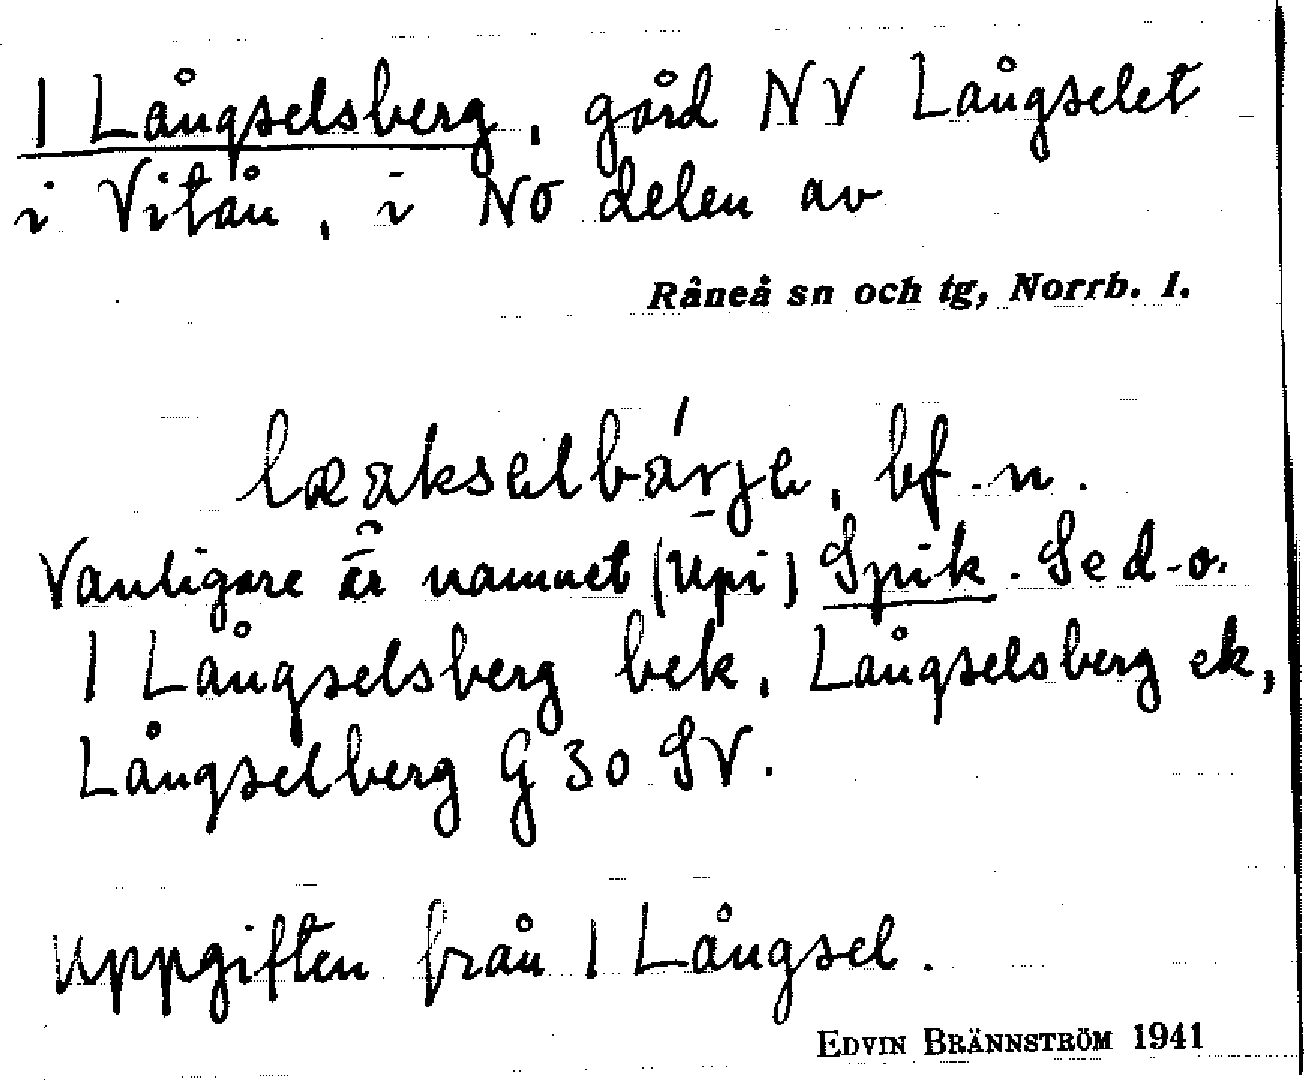 1 Långselsberg, gård NV Långselet
i Vitån, i NO delen av
Råneå sn och tg, Norrb. l.
lææ̯ksəlbárjə, bf. n.
Vanligare är namnet (Upi) Spik. Se d. o.
1 Långselsberg bek, Långselsberg ek,
Långselberg G 30 SV.
Uppgiften från 1 Långsel.
EDVIN BRÄNNSTRÖM 1941